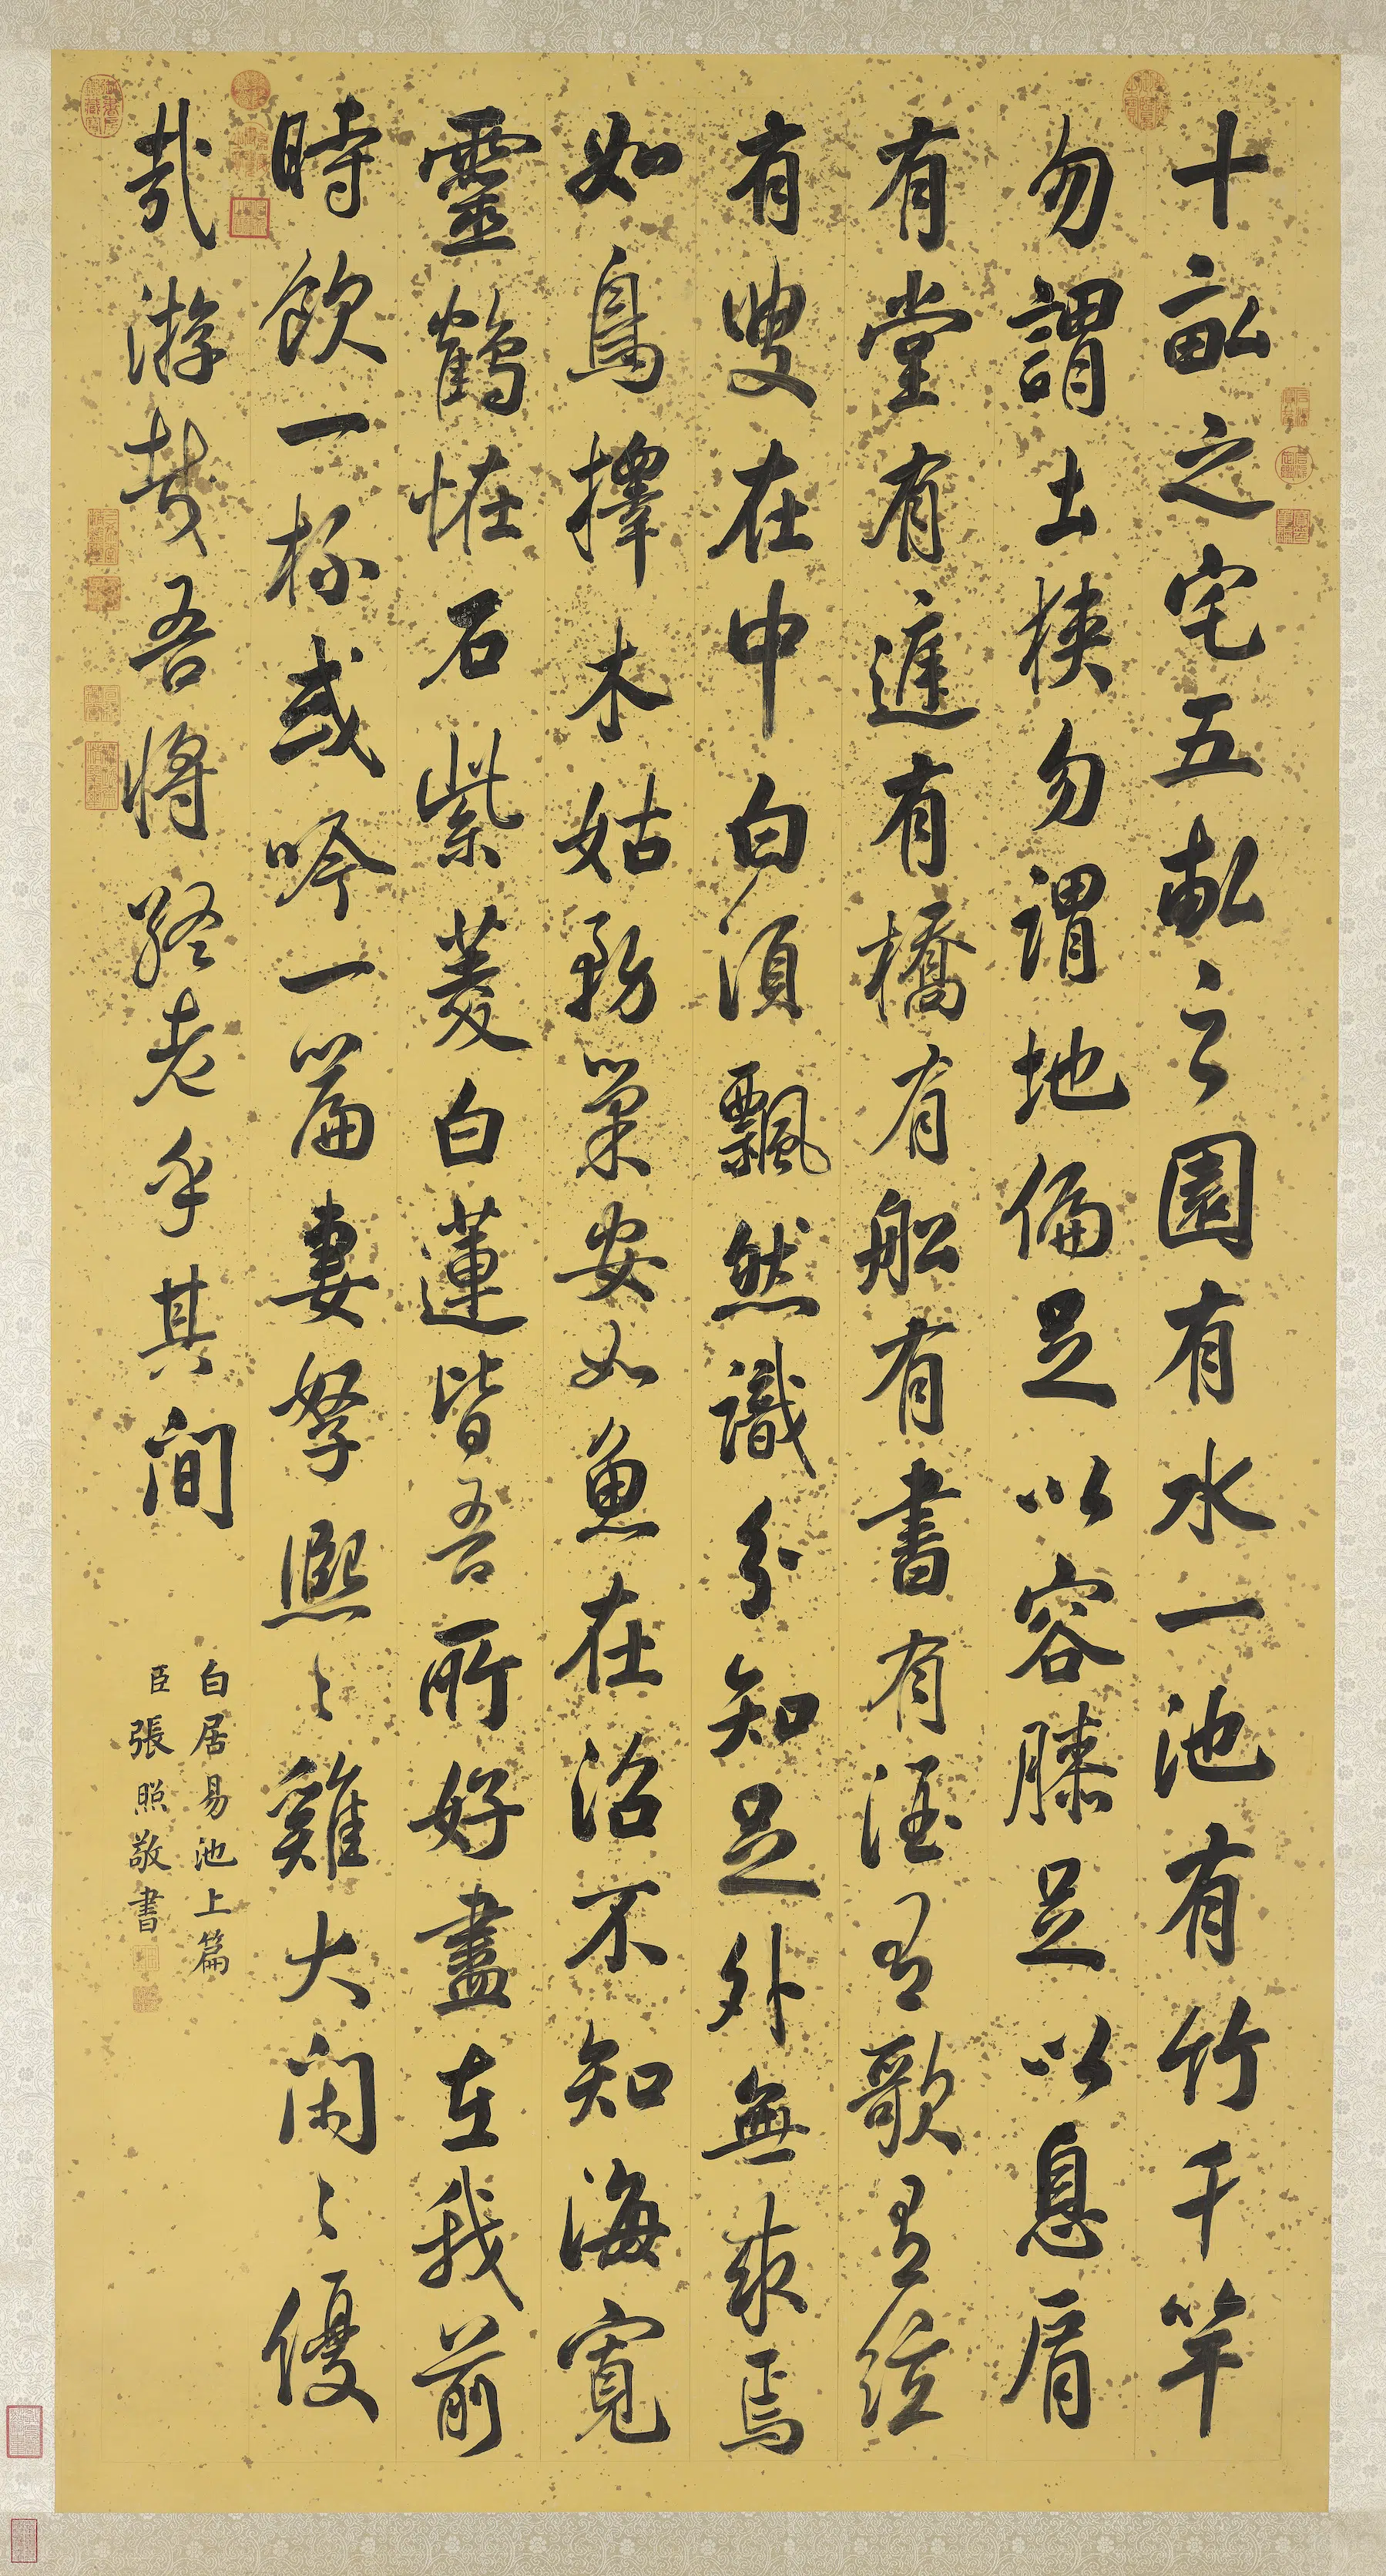 十畝之宅五畝之園有水一池有竹千竿
勿謂土狹勿謂地偏足以容膝足以息肩
有堂有庭有橋有船有書有酒有歌有絃
有叟在中白須飄然識分知足外無求焉
如鳥擇木姑務巢安如魚在沼不知海寬
靈鶴恠石紫菱白蓮皆吾所好盡在我前
時飲一杯或吟一篇妻孥熙〻雞犬閑〻優
哉游哉吾將終老乎其間
白居易池上篇
臣張照敬書